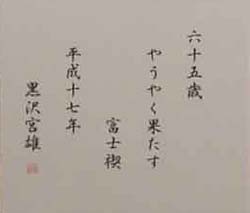 六十五歳
やうやく果たす
富士禊
平成十七年
黒沢宮雄